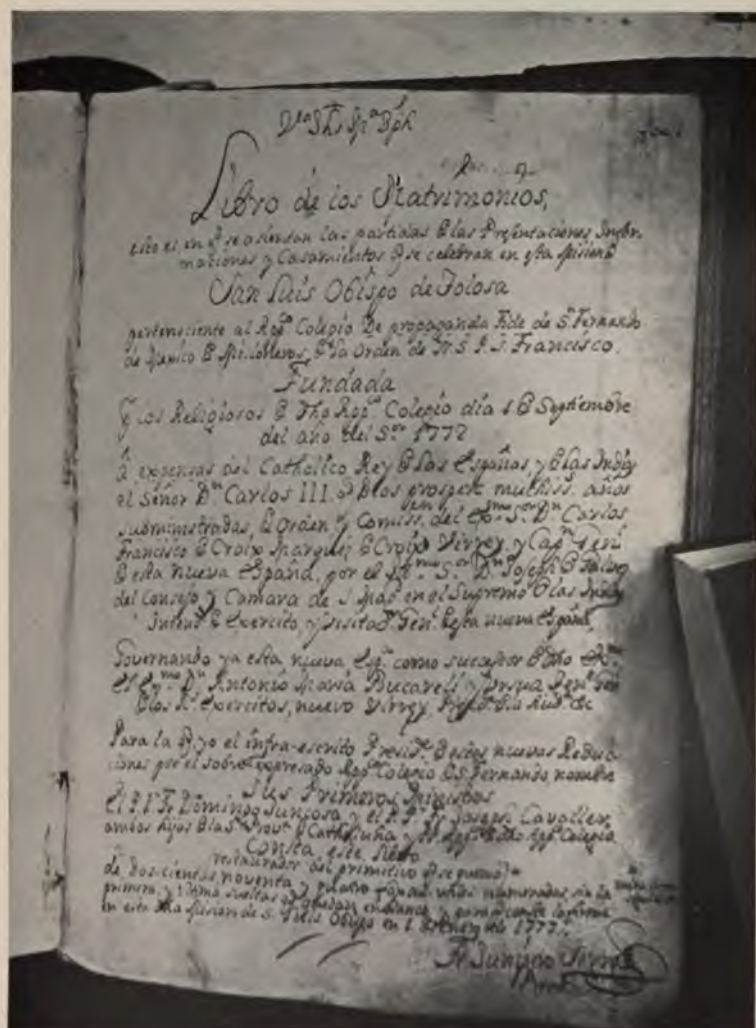 Libro de los Matrimonios,
esto es en q̃ se asientan las partidas las Presentaciones, Infor-
maciones y Casamientos q̃ se celebran en esta Mision
San Luis Obispo de Tolosa
perteneciente al App.co Colegio De propaganda Fide de S.n Fernando
de Mexico Misioneros, la Orden de N. S. P. S. Francisco.
Fundada
los Religiosos App.co Colegio dia 1 Septiembre
del año del S.or 1772
á expensas del Catholico Rey las Españas, y las Indias
el Señor D.n Carlos III. prospere muchiss. años
subministradas, Orden y Comiss.on del Ex.mo S.or D.n Carlos
Francisco Croix Marques Croix Virrey, y Cap.n Genl
esta nueva España, por el S.or D.n Joseph Galvez
del Consejo y Camara de S. Mag.d en el Supremo las Indias
Intend.te Exercito, y Visitad.r Gen.l esta nueva España,
Governando ya esta nueva Esp.a como sucessor
el Ex.mo D.n Antonio Maria Bucareli y Ursua
los R.s Exercitos, nuevo Virrey,
Para la yo el infra-escrito Presid.te estas nuevas Reduc-
ciones por el sobre expresado App.co Colegio S. Fernando nombre
Sus Primeros Ministros
el P. Fr. Domingo Juncosa y el P. Fr. Joseph Cavaller,
ambos hijos Cathaluña y App.co Colegio
Consta este Libro
restaurador del primitivo q̃ se quemó
de doscientas, noventa y quatro foxas utiles numeradas, sin la
primera, y ultima sueltas q̃ quedan en blanco y para q̃ conste lo firmé
en esta Mision de S. Luis Obispo en 1 Enero de 1777.
Fr. Junipero Serra